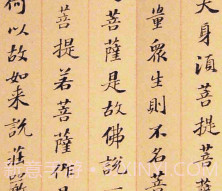 大身湏菩提菩薩
量眾生則不名菩
菩薩是故佛說一
菩提若菩薩作是
何以故如来說莊嚴